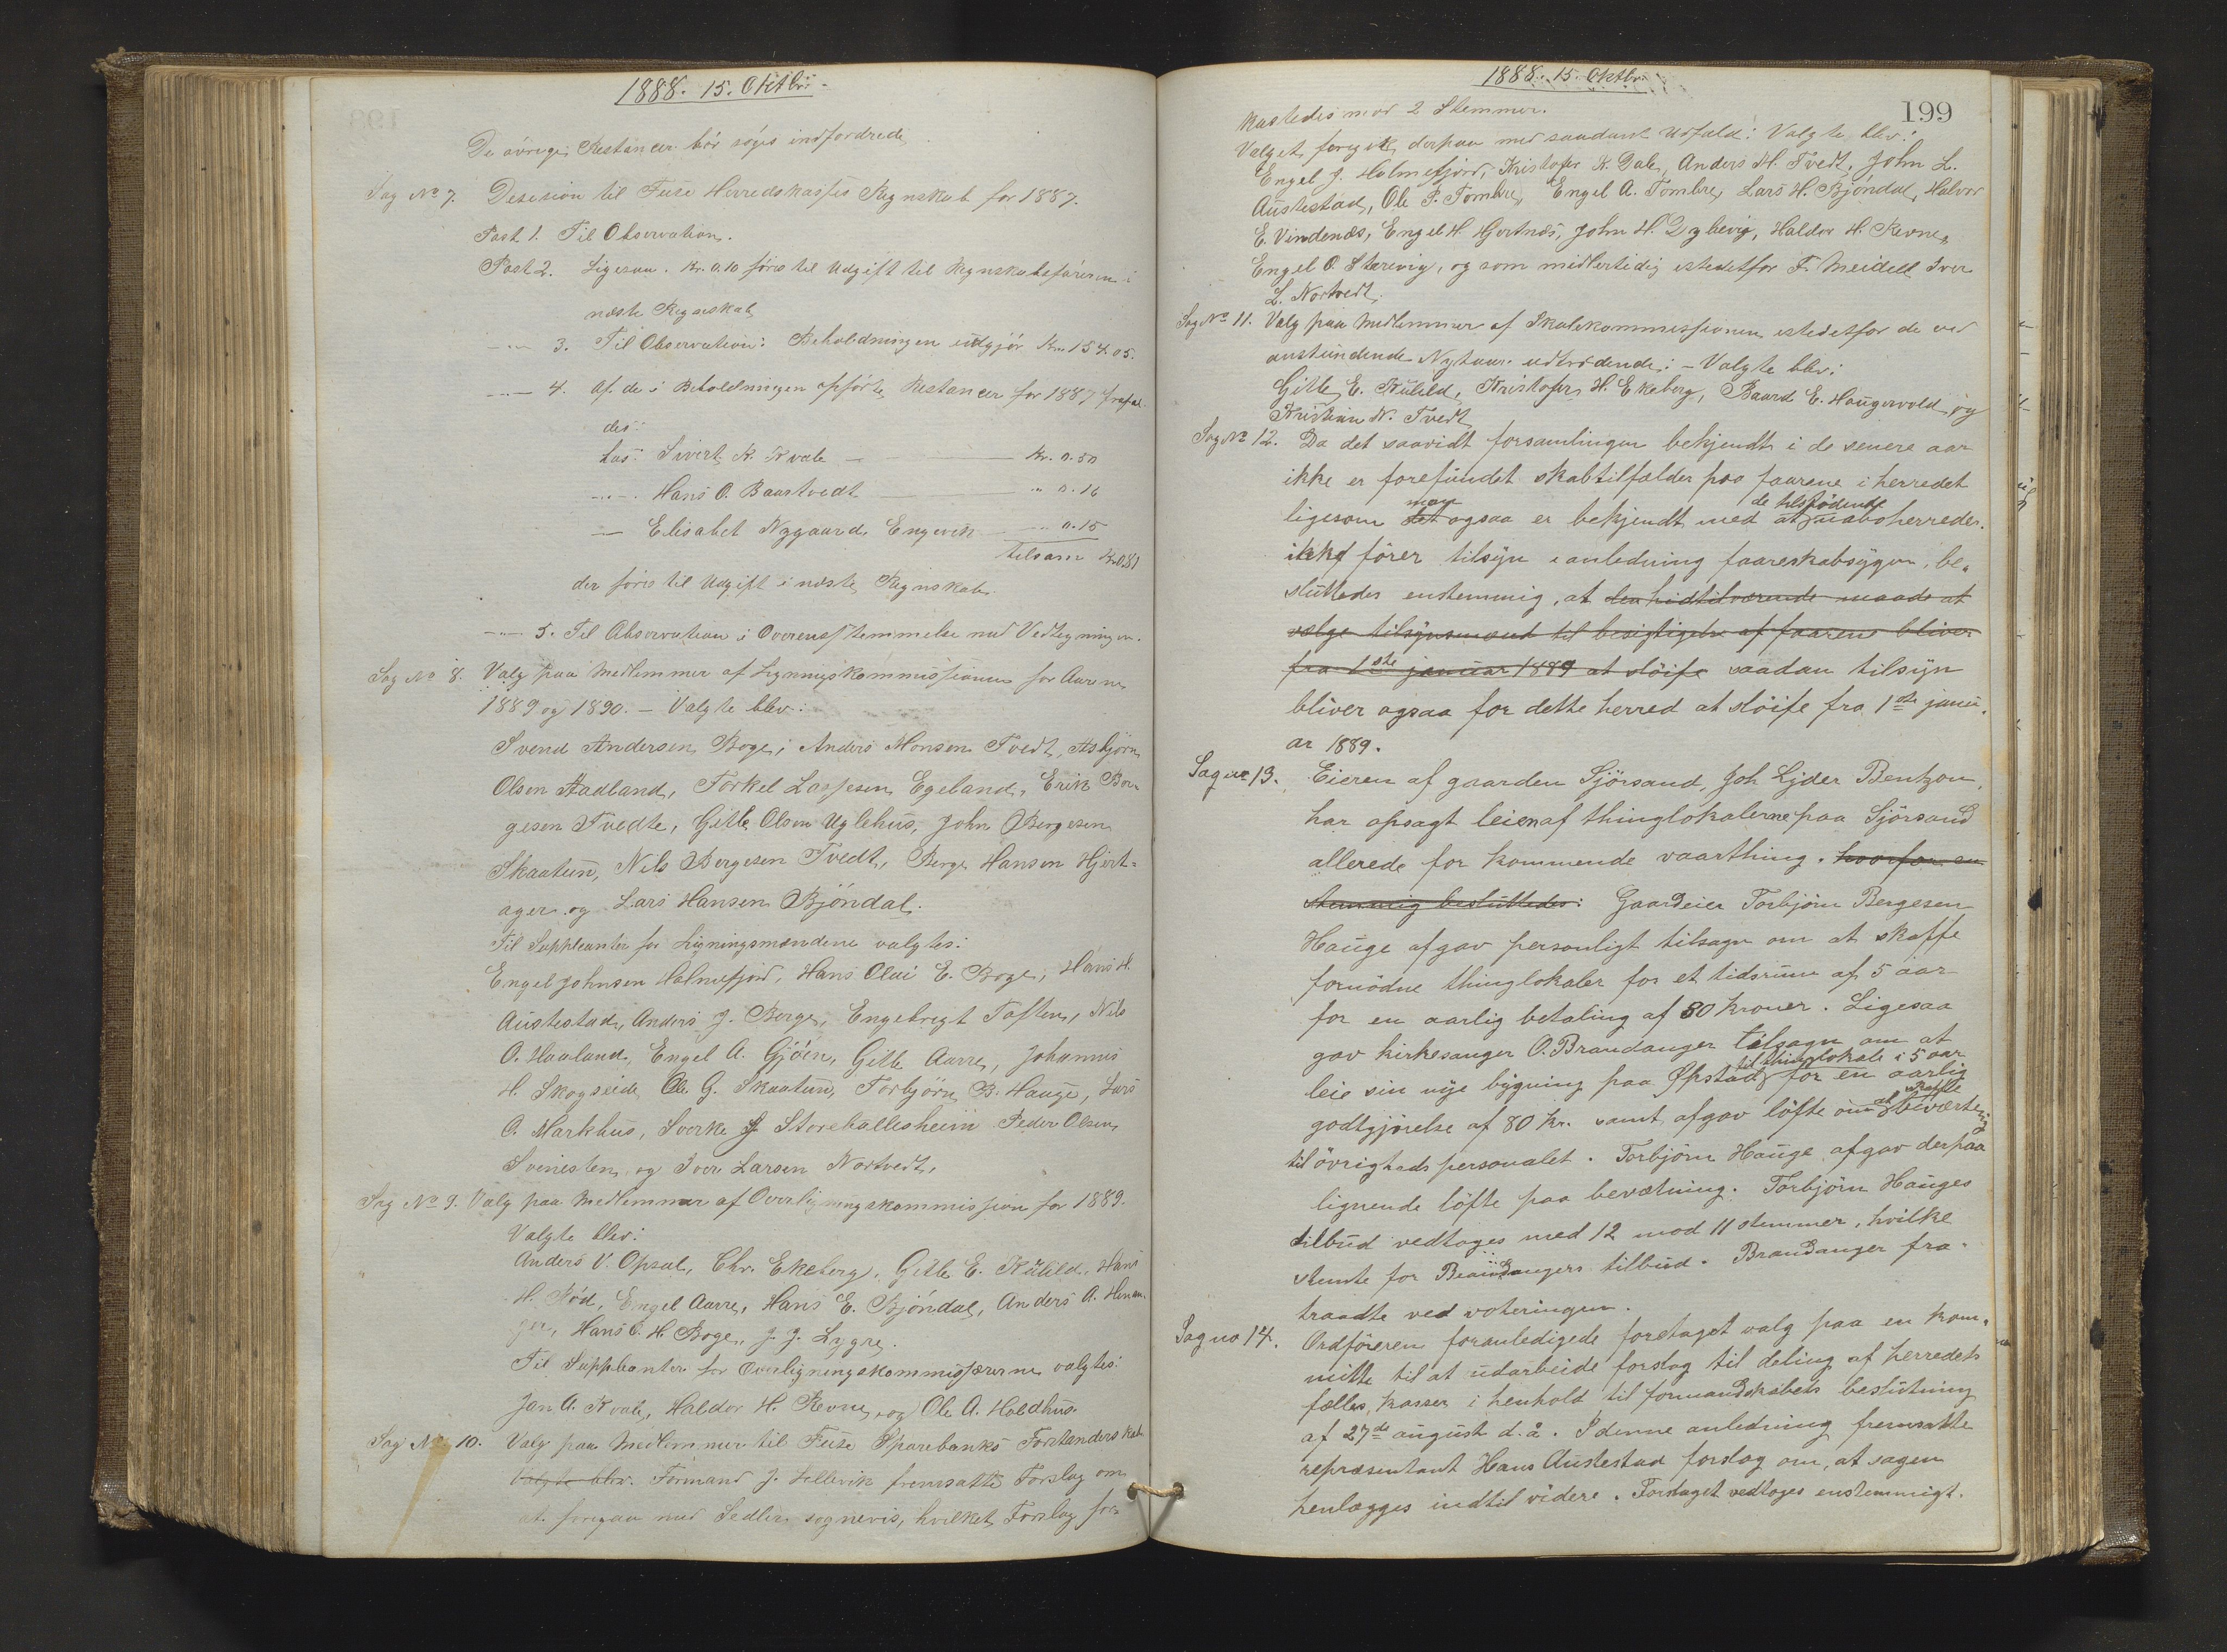 1888. 15. Oktbr.
De øvrige Restancer bør søges indfordrede.
Sag No 7. Desision til Fuse Herredskasses Regnskab for 1887.
Post 1. Til Observation.
Post 2. Ligesaa. Kr. 0.10 føres til Udgift til Regnskabsføreren i
næste Regnskab
—"— 3. Til Observation: Beholdningen udgjør Kr. 154.05.
—"— 4. Af de i Beholdningen opførte Restancer for 1887 frafal-
des:
hos: Sivert K. Kvale — Kr. 0.50
—"— Hans O. Baartvedt — " 0.16
— Elisabet Nygaard Engevik — " 0.15
tilsam Kr. 0.81
der føres til Udgift i næste Regnskab.
—"— 5. Til Observation i Overensstemmelse med Vedtegningen.
Sag No 8. Valg paa Medlemmer af Ligningskommissionen for Aarene
1889 og 1890. — Valgte blev:
Svend Andersen Boge, Anders Monsen Tvedt, Asbjørn
Olsen Aadland, Torkel Lassesen Egeland, Erik Bør-
gesen Tvedte, Gitle Olsen Uglehus, John Bergesen
Skaatun, Nils Bergesen Tvedt, Berge Hansen Hjert-
ager og Lars Hansen Bjøndal.
Til Suppleanter for Ligningsmændene valgtes:
Engel Johnsen Holmefjord, Hans Olai E. Boge, Hans H.
Austestad, Anders J. Berge, Engebregt Toften, Nils
O. Haaland, Engel A. Gjøen, Gitle Aarre, Johannes
H. Skogseide, Ole G. Skaatun, Torbjørn B. Hauge, Lars
O. Markhus, Sverke J. Storehallesheim Peder Olsen
Svinesten og Iver Larsen Nortvedt.
Sag No 9. Valg paa Medlemmer af Overligningskommission for 1889.
Valgte blev:
Anders V. Opsal, Chr. Ekeberg, Gitle E. Kulild, Hans
H. Rød, Engel Aarre, Hans E. Bjøndal, Anders A. Henan-
ger, Hans O. H. Boge, J. J. Lygre.
Til Suppleanter for Overligningskommissærerne valgtes:
Jan A. Kvale, Haldor H. Revne og Ole A. Holdhus.
Sag No 10. Valg paa Medlemmer til Fuse Sparebanks Forstanderskab
Valgte blev. Formand J. Sellevik fremsatte Forslag om
at foregaa med Sedler sognevis, hvilket Forslag for-
1888. 15. Oktbr.
199
kastedes mod 2 Stemmer.
Valget foregik derpaa med saadant Udfald: Valgte blev:
Engel J. Holmefjord, Kristofer K. Dale, Anders M. Tvedt, John L.
Austestad, Ole P. Tombre, Engel A. Tombre, Lars H. Bjøndal, Halvor
E. Vindenes, Engel H. Gjertnes, John H. Dybevig, Haldor H. Revne,
Engel O. Størevig, og som midlertidig istedetfor F. Meidell Iver
L. Nortvedt.
Sag No 11. Valg paa Medlemmer af Skolekommissionen istedetfor de ved
anstundende Nytaar udtrædende: — Valgte blev:
Gitle E. Kulild, Kristofer H. Ekeberg, Baard E. Haugervold og
Kristian N. Tvedt
Sag No 12. Da det saavidt forsamlingen bekjendt i de senere aar
ikke er forefundet skabtilfælder paa faarene i herredet
ligesom det man ogsaa er bekjendt med at de tilstødende naboherreder
ikke fører tilsyn i anledning faareskabsygen, be-
sluttedes enstemmig, at den hidtilværende maade at
vælge tilsynsmænd til besigtigelse af faarene bliver
fra 1ste januar 1889 at sløife saadan tilsyn
bliver ogsaa for dette herred at sløife fra 1ste janu-
ar 1889.
Sag no 13. Eieren af gaarden Sjørsand, Joh Lyder Bentzon,
har opsagt leien af thinglokalerne paa Sjørsand
allerede for kommende vaarthing. hvorfor en-
stemmig besluttedes: Gaardeier Torbjørn Bergesen
Hauge afgav personligt tilsagn om at skaffe
fornødne thinglokaler for et tidsrum af 5 aar
for en aarlig betaling af 80 kroner. Ligesaa
gav kirkesanger O. Brandanger tilsagn om at
leie sin nye bygning paa Øpstad til thinglokale i 5 aar for en aarlig
godtgjørelse af 80 kr. samt afgav løfte om at skaffe beværtning
til øvrighedspersonalet. Torbjørn Hauge afgav derpaa
lignende løfte paa beværtning. Torbjørn Hauges
tilbud vedtoges med 12 mod 11 stemmer, hvilke
stemte for Brandangers tilbud. Brandanger fra-
traadte ved voteringen.
Sag no 14. Ordføreren foranledigede foretaget valg paa en kom-
mitte til at udarbeide forslag til deling af herredets
fælles kasser i henhold til formandskabets beslutning
af 27de august d. å. I denne anledning fremsatte
repræsentant Hans Austestad forslag om, at sagen
henlægges indtil videre. Forslaget vedtoges enstemmigt.